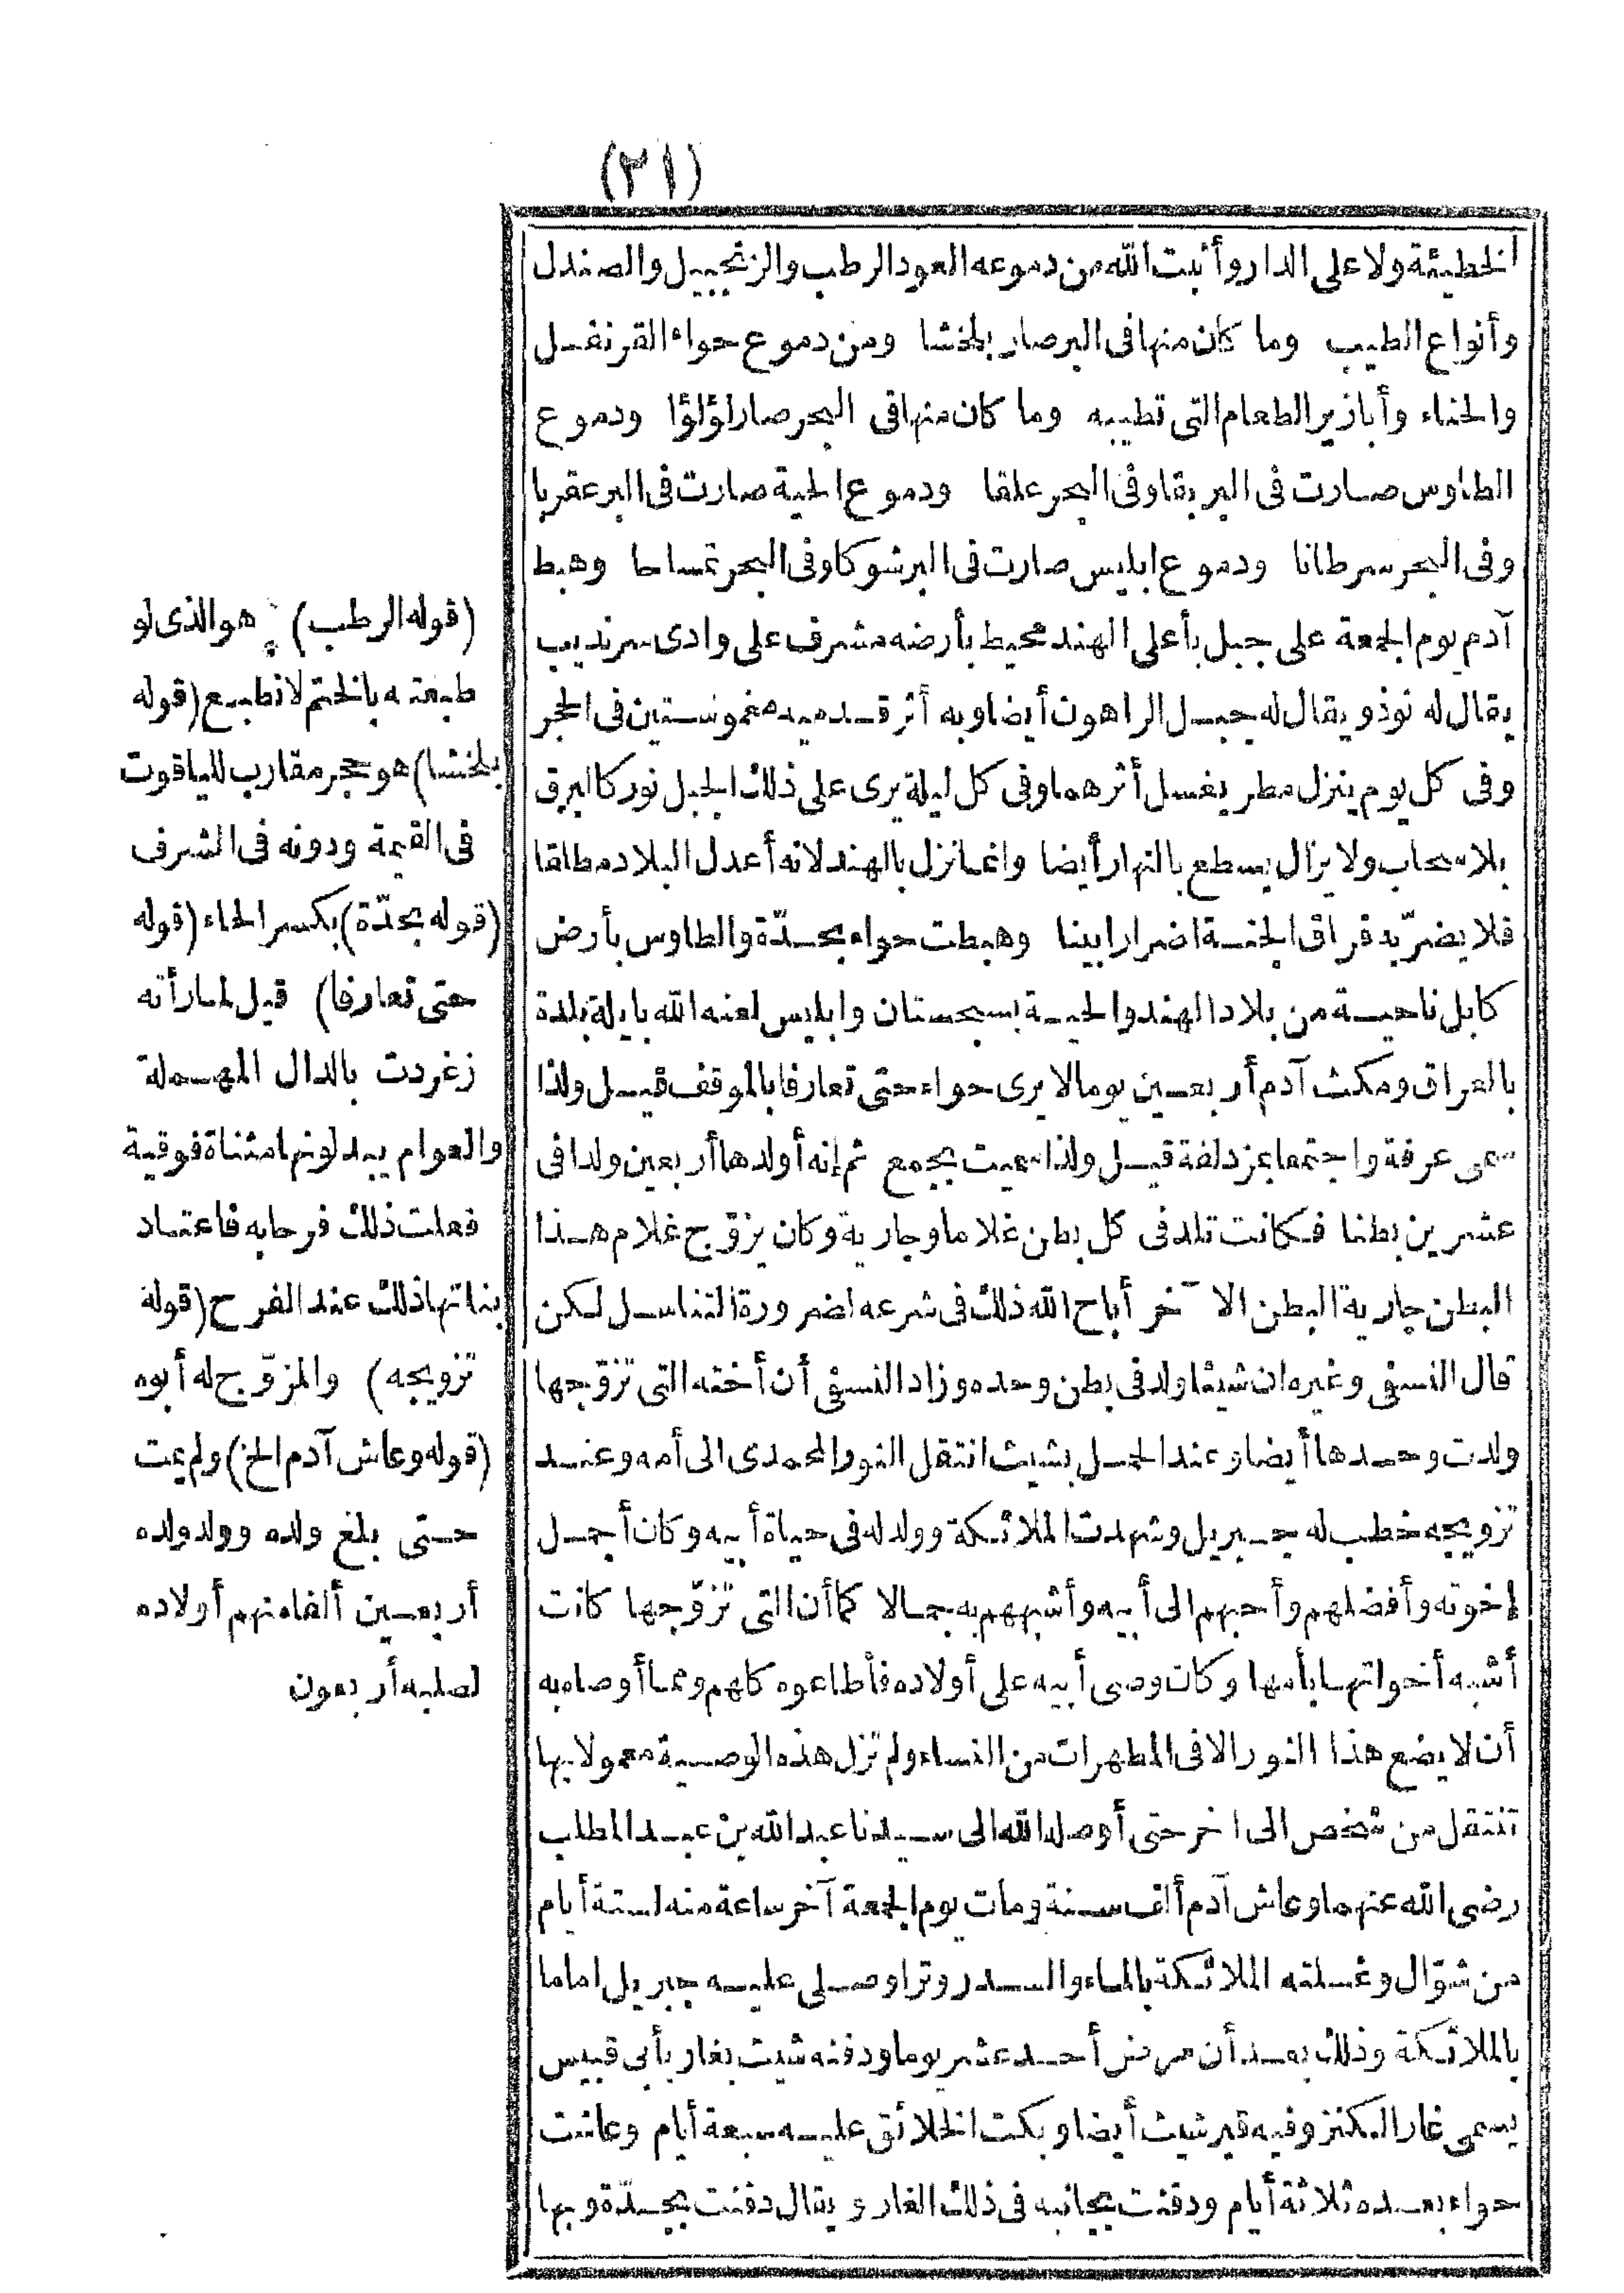 (٢١)
الخطيئة ولا على الدار وأنبت الله من دموعه العود الرطب والزنجبيل والصندل
وأنواع الطيب وما كان منها فى البر صار بلخشا ومن دموع حواء القرنفل
والحناء وأبازير الطعام التى تطيبه وما كان منها فى البحر صار لؤلؤا ودموع
الطاوس صارت فى البر بقا وفى البحر علقا ودموع الحية صارت فى البر عقربا
وفى البحر سرطانا ودموع ابليس صارت فى البر شوكا وفى البحر تمساحا وهبط
آدم يوم الجمعة على جبل بأعلى الهند محيط بأرضه مشرف على وادى سرنديب
يقال له نوذ ويقال له جبل الراهون أيضا وبه أثر قدميه مغموستين فى الحجر
وفى كل يوم ينزل مطر يغسل أثرهما وفى كل ليلة يرى على ذلك الجبل نور كالبرق
بلا سحاب ولا يزال يسطع بالنهار أيضا وانما نزل بالهند لانه أعدل البلاد مطلقا
فلا يضر به فراق الجنة اضرارا بينا وهبطت حواء بجدّة والطاوس بأرض
كابل ناحية من بلاد الهند والحية بسجستان وابليس لعنه الله بايلة بلدة
بالعراق ومكث آدم أربعين يوما لا يرى حواء حتى تعارفا بالموقف قيل ولذا
سمى عرفة واجتمعا بمزدلفة قيل ولذا سميت بجمع ثم إنه أولدها أربعين ولدا فى
عشرين بطنا فكانت تلد فى كل بطن غلاما وجارية وكان يزوّج غلام هذا
البطن جارية البطن الآخر أباح الله ذلك فى شرعه لضرورة التناسل لكن
قال النسفى وغيره ان شيثا ولد فى بطن وحده وزاد النسفى أن أخته التى تزوّجها
ولدت وحدها أيضا وعند الحمل بشيث انتقل النور المحمدى الى أمه وعند
تزويجه خطب له جبريل وشهدت الملائكة وولد له فى حياة أبيه وكان أجمل
إخوته وأفضلهم وأحبهم الى أبيه وأشبههم به جمالا كما أن التى تزوّجها كانت
أشبه أخواتها بأمها وكان وصى أبيه على أولاده فأطاعوه كلهم ومما أوصاه به
أن لا يضع هذا النور الا فى المطهرات من النساء ولم تزل هذه الوصية معمولا بها
تنتقل من شخص الى اخر حتى أوصله الله الى سيدنا عبد الله بن عبد المطلب
رضى الله عنهما وعاش آدم ألف سنة ومات يوم الجمعة آخر ساعة منه لستة أيام
من شوّال وغسلته الملائكة بالماء والسدر وترا وصلى عليه جبريل اماما
بالملائكة وذلك بعد أن مرض أحد عشر يوما ودفنه شيث بغار بأبى قبيس
يسمى غار الكنز وفيه قبر شيث أيضا وبكت الخلائق عليه سبعة أيام وعاشت
حواء بعده ثلاثة أيام ودفنت بجانبه فى ذلك الغار ويقال دفنت بجدّة وبها
(قوله الرطب) هو الذى لو
طبعته بالختم لانطبع (قوله
بلخشا) هو حجر مقارب للياقوت
فى القيمة ودونه فى الشرف
(قوله بجدّة) بكسر الحاء (قوله
حتى تعارفا) قيل لما رأته
زغردت بالدال المهملة
والعوام يبدلونها مثناة فوقية
فعلت ذلك فرحا به فاعتاد
بناتها ذلك عند الفرح (قوله
تزويجه) والمزوّج له أبوه
(قوله وعاش آدم الخ) ولم يمت
حتى بلغ ولده وولد ولده
أربعين ألفا منهم أولاده
لصلبه أربعون